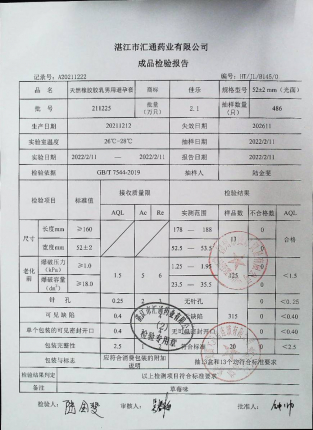 湛江市汇通药业有限公司
成品检验报告
记录号: A20211222 编号: HT/JL/8145/0
品 名 天然橡胶胶乳男用避孕套 商标 佳乐 规格型号 52±2 mm (光面)
批 号 211225 批量 (万只) 2.1 抽样数量 (只) 486
生产日期 20211212 失效日期 202611
实验室温度 26℃-28℃ 抽样日期 2022/2/11
实验日期 2022/2/11 报告日期 2022/2/11
检验依据 GB/T 7544-2019 抽样人 陆金斐
检验项目 标准值 接收质量限 检验结果
AQL Ac Re 实测范围 样品数 不合格数 AQL
尺寸 长度mm ≥160 178 — 188 13 0 合格
宽度mm 52±2 52.5 — 53.5 0
老化前 爆破压力 (kPa) ≥1.0 1.5 5 6 1.25 — 1.95 125 0 <1.5
爆破容量 (dm³) ≥18.0 23.5 — 35.5 0
针 孔 0.25 2 无针孔 0 <0.25
可见缺陷 0.4 无缺陷 315 0 <0.40
单个包装的可见密封开口 0.4 0 <0.40
包装完整性 2.5 符合标准 20 0 <2.5
包装与标志 应符合消费包装的附加说明
检验结果判定 以上检测项目符合标准要求
备注 草莓味
湛江市汇通药业有限公司
(2)
检验专用章
检验人: 陆金斐 审核人: 批准人: